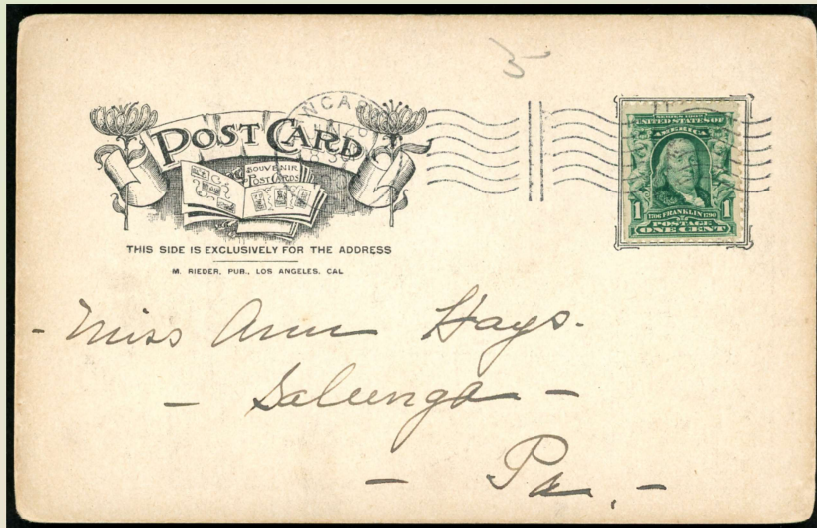 POST CARD
SOUVENIR
POSTCARDS
THIS SIDE IS EXCLUSIVELY FOR THE ADDRESS
M. RIEDER, PUB., LOS ANGELES, CAL
SERIES 1902
UNITED STATES OF
AMERICA
1 1706 FRANKLIN 1790 1
POSTAGE
ONE CENT
- Miss Ann Hays.
- Salunga -
- Pa. -